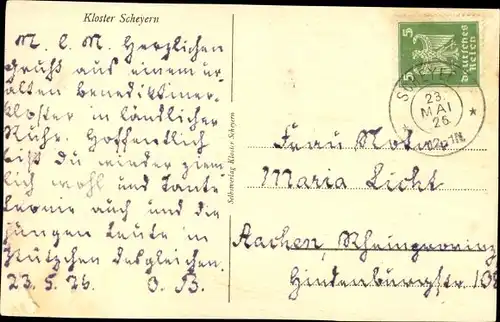 Kloster Scheyern
M. l. M. Herzlichen
Gruß aus einem ur-
alten Benediktiner-
kloster in ländlicher
Ruhe. Hoffentlich
bist du wieder ziem
lich wohl und Tante
Leonie auch und die
jungen Leute in
Stützchen desgleichen.
23.5.26. O. B.
Selbstverlag Kloster Scheyern
5 5
Deutsches
Reich
23.
MAI
26
Frau Notar
Maria Licht
Aachen, Rheinprovinz
Hindenburgstr. 108